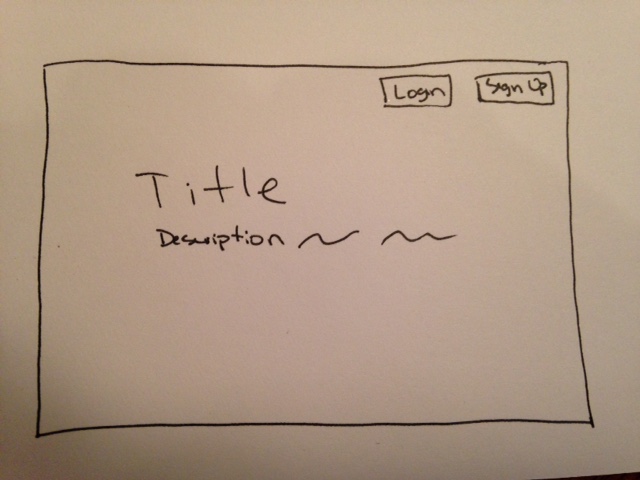 Login
Sign Up
Title
Description